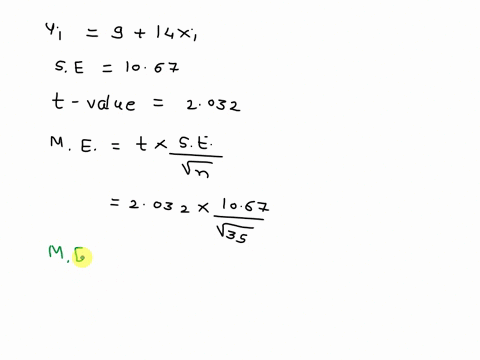 Yi = 9 + 14xi
S.E = 10.67
t - value = 2.032
M. E. = t × S.E. / √n
= 2.032 × 10.67 / √35
M. E